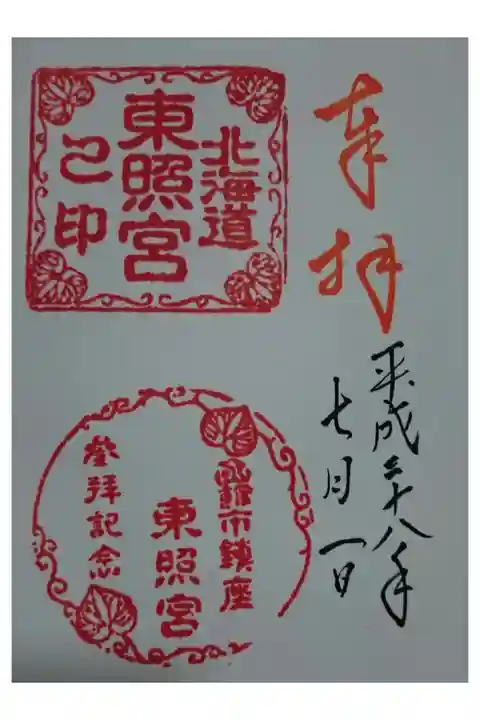 奉拝
平成二十八年
七月一日
北海道
東照宮
之印
函館市鎮座
東照宮
参拝記念